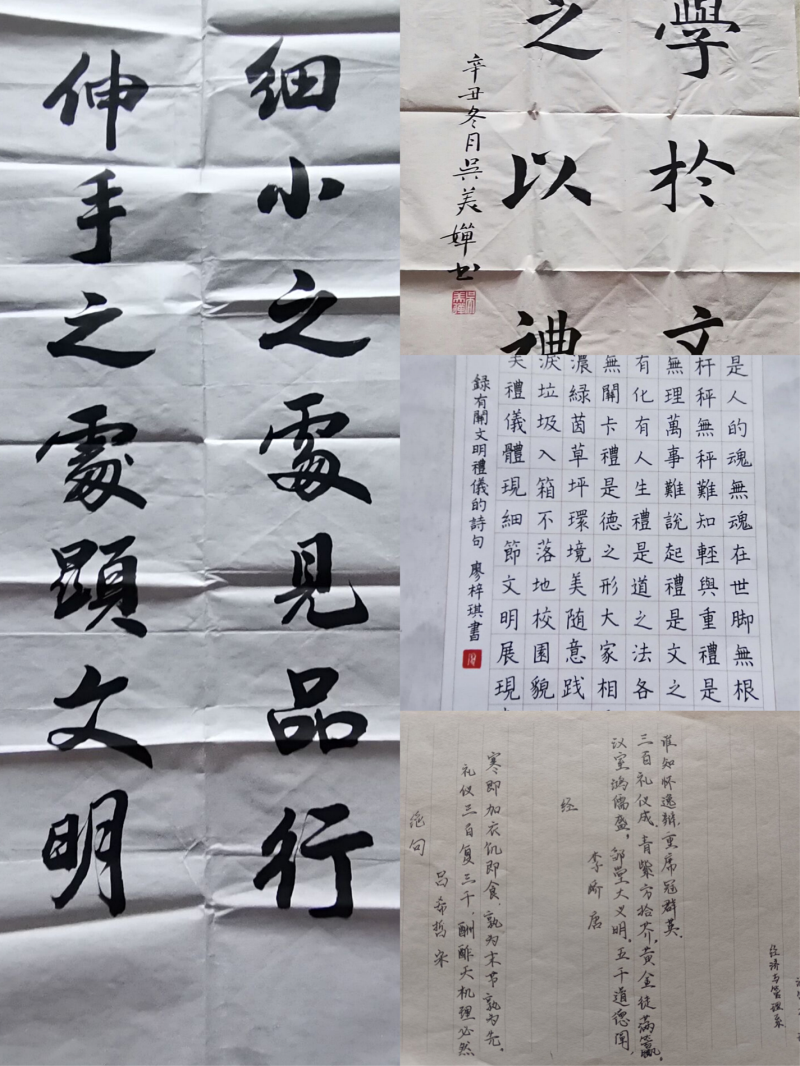 细小之處見品行
伸手之處顕文明
學於文
之以禮
辛丑冬月吳美嬋书
是人的魂無魂在世脚無根
杆秤無秤難知輕與重禮是
無理萬事難説起禮是文之
有化有人生禮是道之法各
無關卡禮是德之形大家相
濃緑茵草坪環境美随意践
淚垃圾入箱不落地校園貌
美禮儀體現細節文明展現
録有關文明禮儀的詩句 廖梓琪書
经济与管理系
谁知怀逸辩,重席冠群英.
三百礼仪成.青紫方拾芥,黄金徒满籝,
汉室鸿儒盛,邹鲁大义明.五千道德阐,
李峤 唐
经
寒即加衣饥即食,孰为末节孰为先.
礼仪三百复三千,酬酢天机理必然
吕希哲 宋
绝句